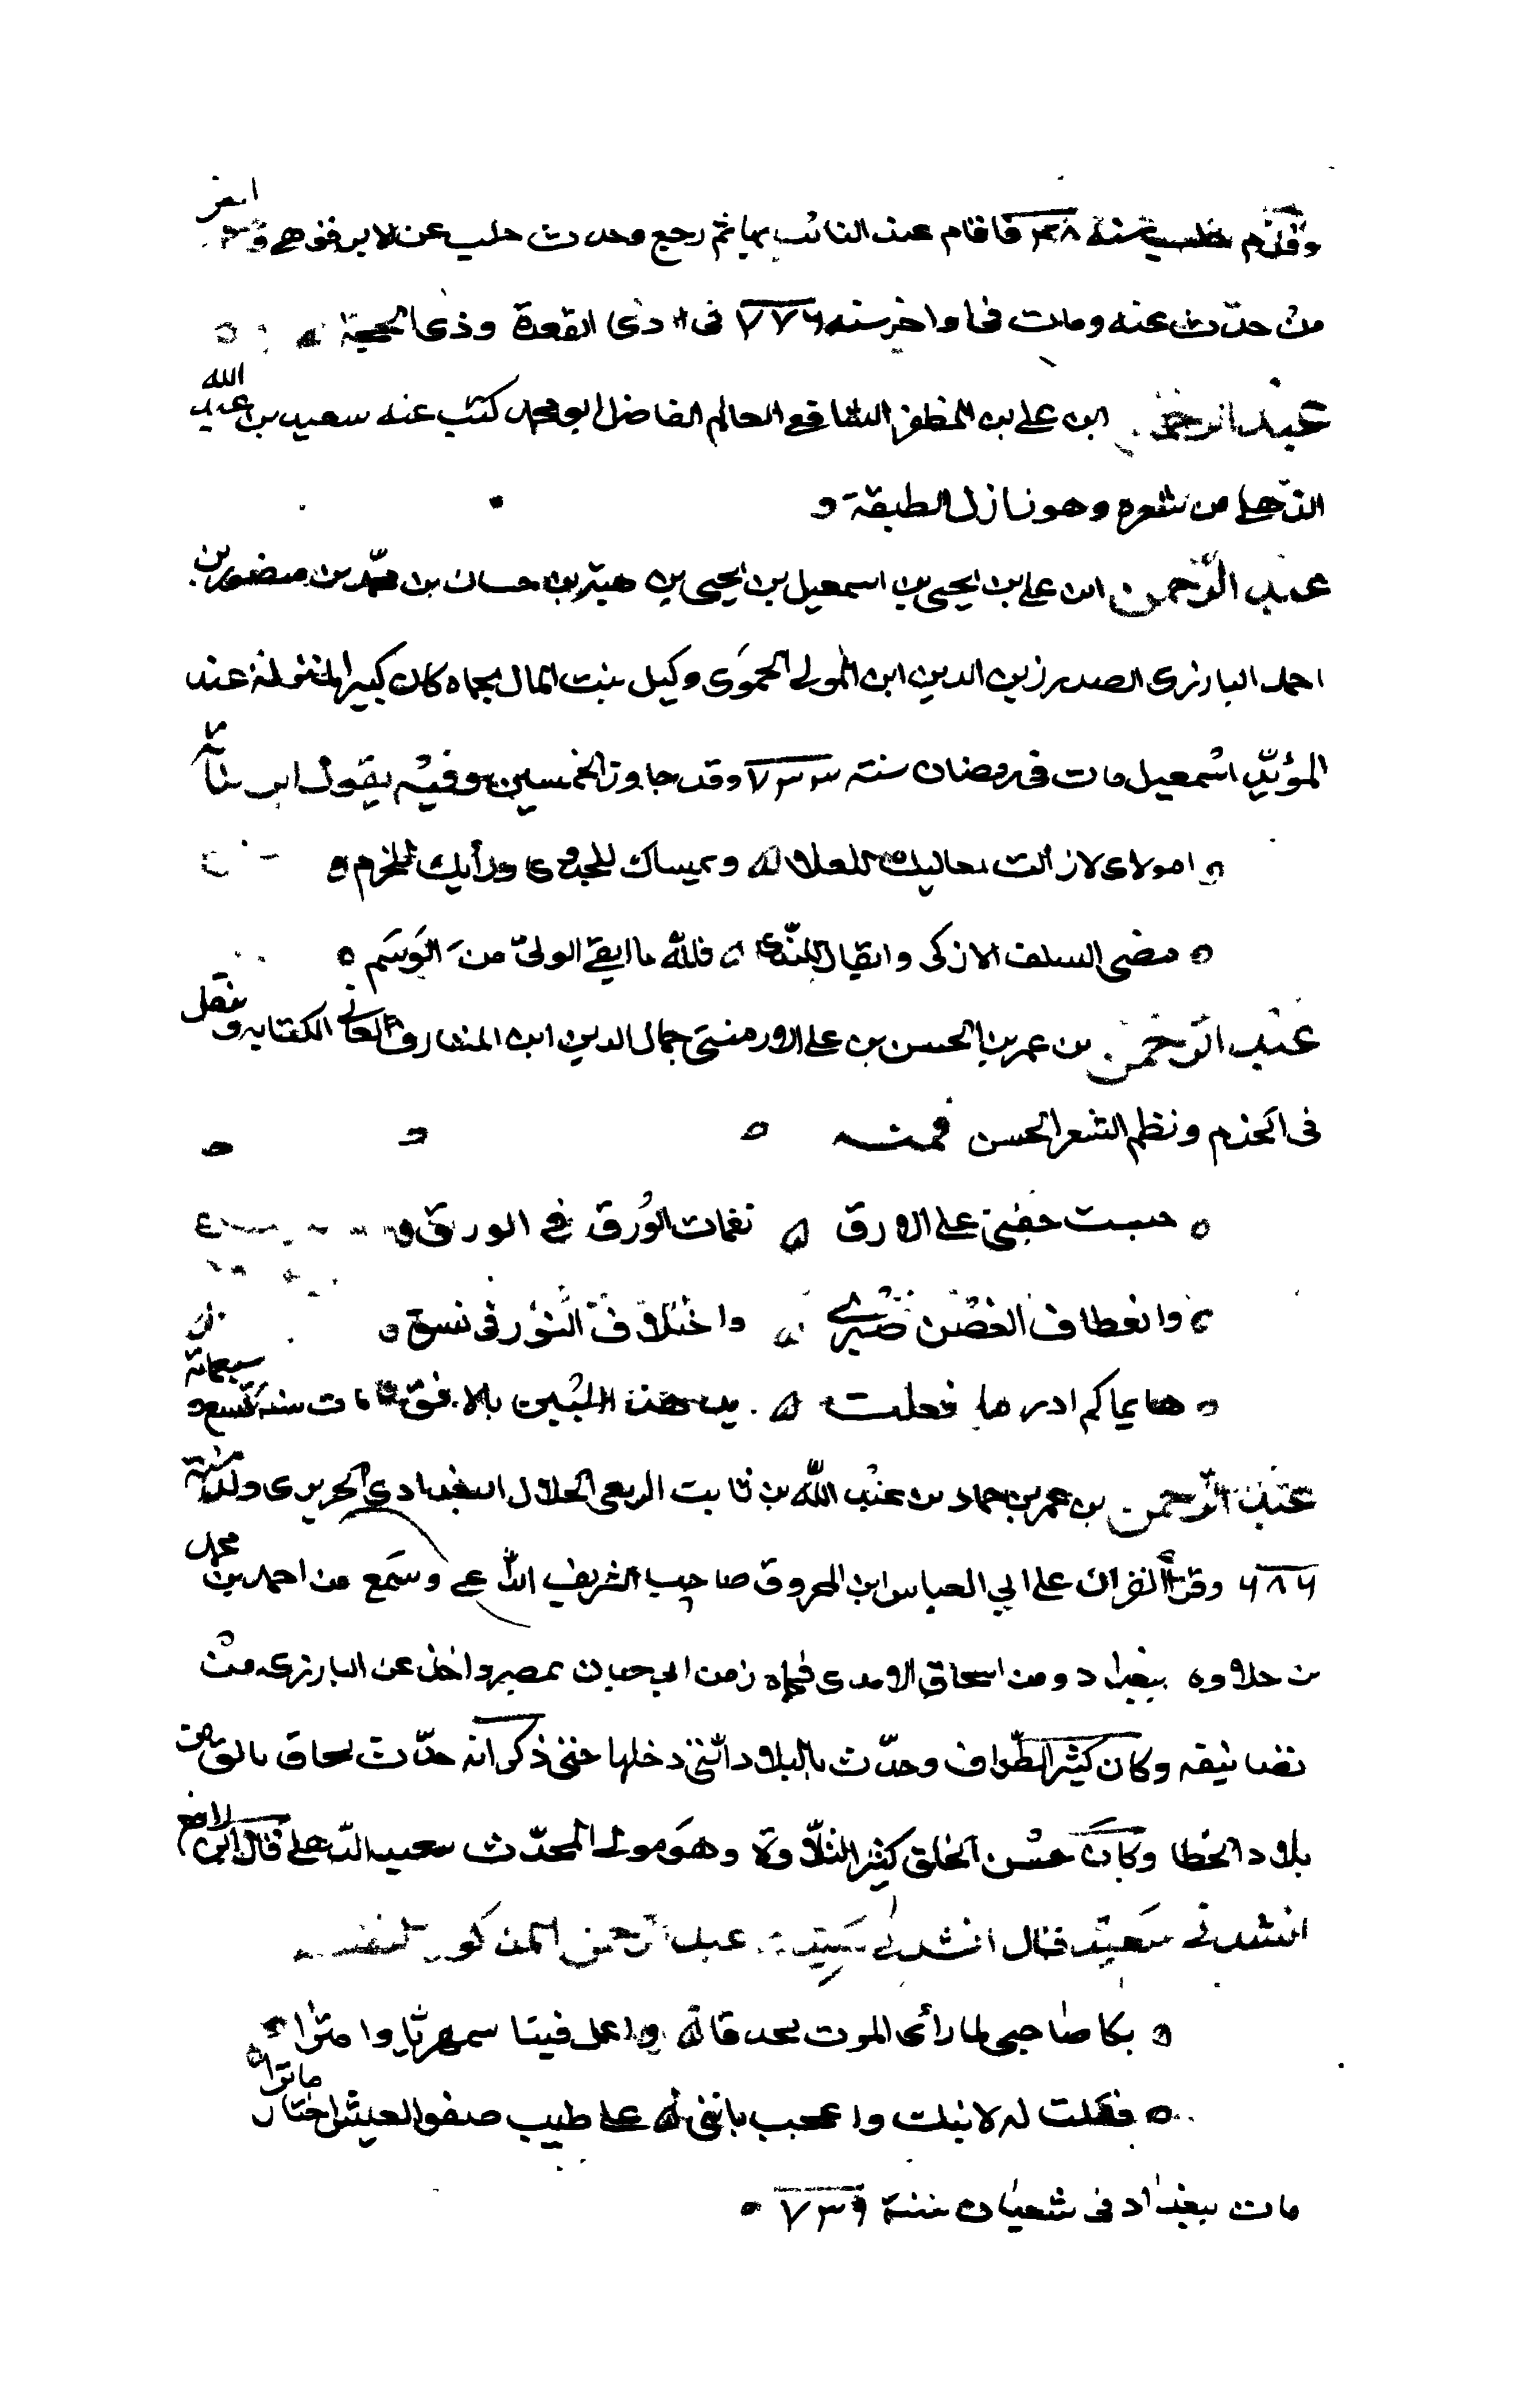 وقدم حلب سنة ٧٣٨ فاقام عند النائب بها ثم رجع وحدث حلب عن الابرقوهي وهو اخر
من حدّث عنه ومات فى اواخر سنه ٧٧٦ فى ذى القعدة وذى الحجة
عبد الرحمن ابن على بن المظفر الشافعي العالم الفاضل ابو محمد كتب عنه سعيد بن عبد الله
الذهلى من شعره وهو نازل الطبقة
عبد الرّحمن ابن على بن يحيى بن اسمعيل بن يحيى بن هبة بن حسان بن محمّد بن منصور بن
احمد البارزى الصدر زين الدين ابن المولى الحموى وكيل بيت المال بحماه كان كبير المنزلة عند
المؤيّد اسمعيل مات فى رمضان سنة ٧٣٣ وقد جاوز الخمسين وفيه يقول ابن نباته
امولاى لازالت معاليك للعلا وميساك للجدوى ورأيك للحزم
مضى السلف الازكى وابقاك للندى فلله ما ابقى الولىّ من الوَسَم
عبد الرّحمن بن عمر بن الحسن بن على الارمنتى جمال الدين ابن المشارف العانى الكتابه وتنقل
فى الخدم ونظم الشعر الحسن فمنه
حبست جفنى على الارق نغمات الوُرق في الورق
وانعطاف الغصن صيّرى واختلاف النّور فى نسق
مات سنة تسع وسبعمائة
عبد الرّحمن بن عمر بن حماد بن عبد الله بن ثابت الربعى الخلال البغدادي الحريرى ولد سنة
٦٨٦ وقرأ القران على ابي العباس ابن المحروق صاحب الشريف الداعي وسمع من احمد بن محمد
بن حلاوه ببغداد ومن اسحاق الامدى فى حماه ومن ابى حيان بمصر واخذ عن البارزى من
تصانيفه وكان كثير الطّواف وحدّث بالبلاد التى دخلها حتى ذكر انه حدّث بحاق بالق من
بلاد الخطا وكان حسن الخلق كثير التلاوة وهو مولى المحدّث سعيد الذهلى قال ابن رافع
انشدنى سعيد قال انشدنى سيّدى عبد الرحمن المذكور لنفسه
بكا صاحبى لما رأى الموت محدقا
فقلت له لا تبك واعجب باننى على طيب صفو العيش اختار ماترا
مات ببغداد فى شعبان سنة ٧٣٩